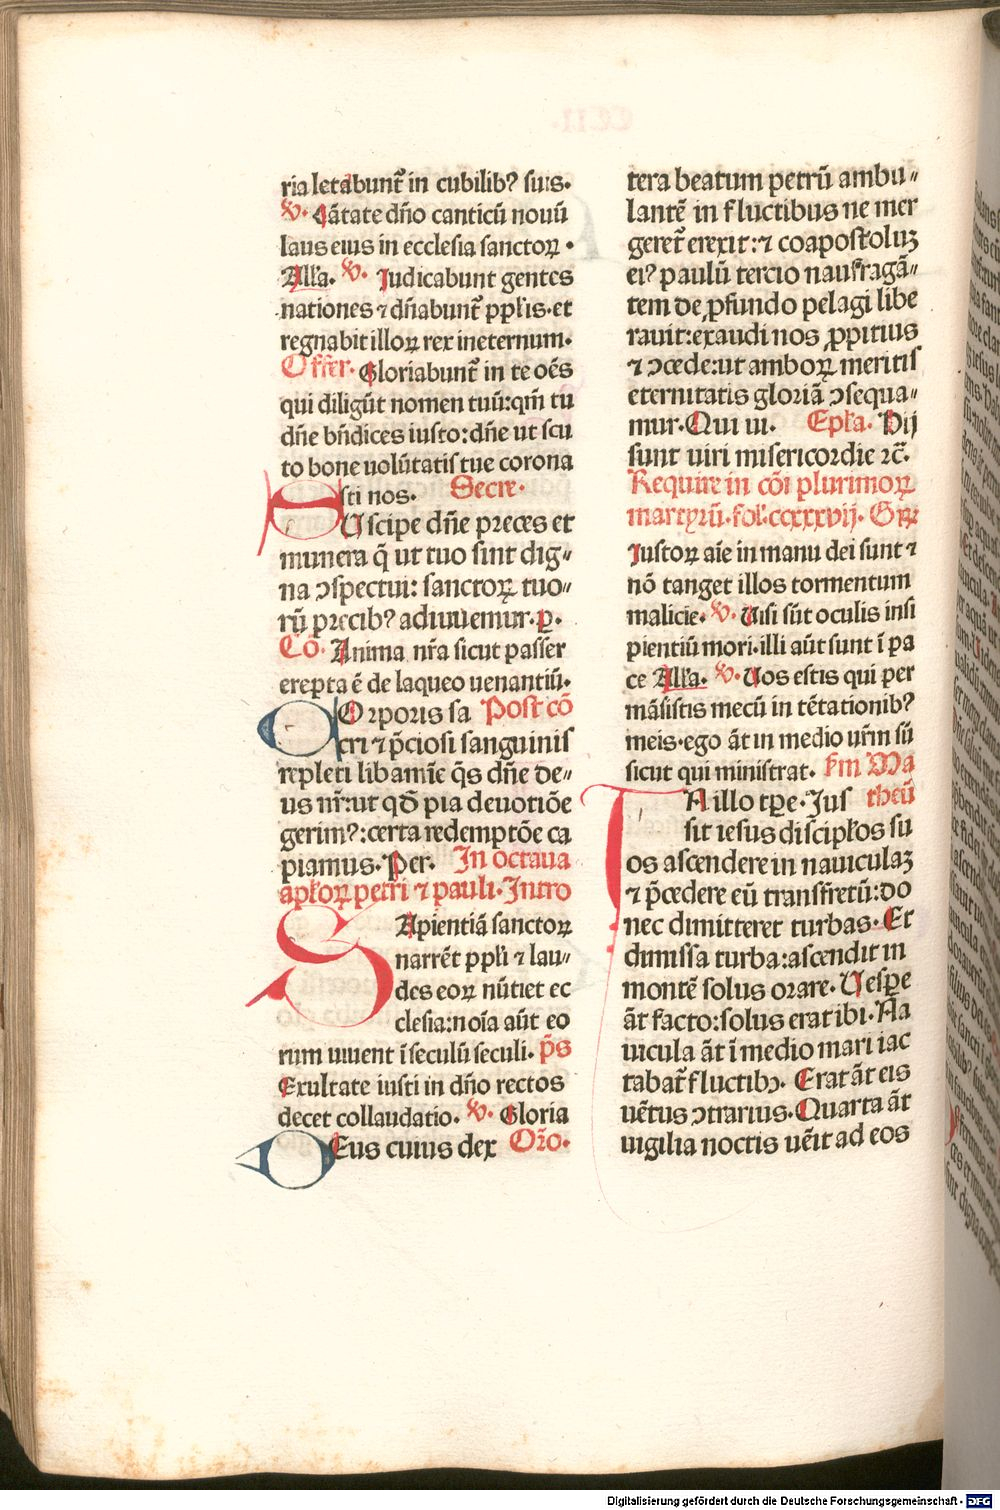 ria letabunt᷑ in cubilibꝰ suis.
℣. Cãtate dño canticũ nouũ
laus eius in ecclesia sanctoꝝ.
Alľa. ℣. Iudicabunt gentes
nationes ⁊ dñabunt᷑ ppľis.et
regnabit illoꝝ rex ineternum.
Offer. Gloriabunt᷑ in te oẽs
qui diligũt nomen tuũ:qm̃ tu
dñe bñdices iusto:dñe ut scu
to bone uolũtatis tue corona
sti nos. Secre.
Uscipe dñe preces et
munera q̃ ut tuo sint dig⸗
na ↄspectui: sanctoꝝ tuo⸗
rũ precibꝰ adiuuemur.ꝑ.
Cõ. Anima nr̃a sicut passer
erepta ẽ de laqueo uenantiũ.
Orporis sa Post cõ
cri ⁊ p̃ciosi sanguinis
repleti libamĩe q̃s dñe de⸗
us nr̃:ut qď pia deuotiõe
gerimꝰ:certa redemptõe ca
piamus. Per. In octaua
apľoꝝ petri ⁊ pauli. Intro
Apientiã sanctoꝝ
narrẽt ppľi ⁊ lau⸗
des eoꝝ nũtiet ec
clesia:noĩa aũt eo
rum uiuent ĩ seculũ seculi. p̃s
Exultate iusti in dño rectos
decet collaudatio. ℣. Gloria
Eus cuius dex Or̃o.
tera beatum petrũ ambu⸗
lantẽ in fluctibus ne mer
geret᷑ erexit:⁊ coapostoluꝫ
eiꝰ paulũ tercio naufragã⸗
tem de ꝓfundo pelagi libe
rauit:exaudi nos ꝓpitius
⁊ ↄcede:ut amboꝝ meritis
eternitatis gloriã ↄsequa⸗
mur.Qui ui. Epľa. Hij
sunt uiri misericordie ⁊c̃.
Require in cõi plurimoꝝ
martyrũ.fol.ccxxxvij. Gr̃
Iustoꝝ aĩe in manu dei sunt ⁊
nõ tanget illos tormentum
malicie. ℣. Uisi sũt oculis insi
pientiũ mori.illi aũt sunt ĩ pa
ce Alľa. ℣. Uos estis qui per
mãsistis mecũ in tẽtationibꝰ
meis.ego ãt in medio ur̃m sũ
sicut qui ministrat. s̃m Ma
N illo tꝑe. Jus theũ
sit iesus discipľos su
os ascendere in nauiculaꝫ
⁊ p̃cedere eũ transfretũ:do
nec dimitteret turbas. Et
dimissa turba:ascendit in
montẽ solus orare. Uesꝑe
ãt facto:solus erat ibi. Na
uicula ãt ĩ medio mari iac
tabat᷑ fluctibꝰ. Erat ãt eis
uẽtus ↄtrarius. Quarta ãt
uigilia noctis uẽit ad eos
Digitalisierung gefördert durch die Deutsche Forschungsgemeinschaft - DFG